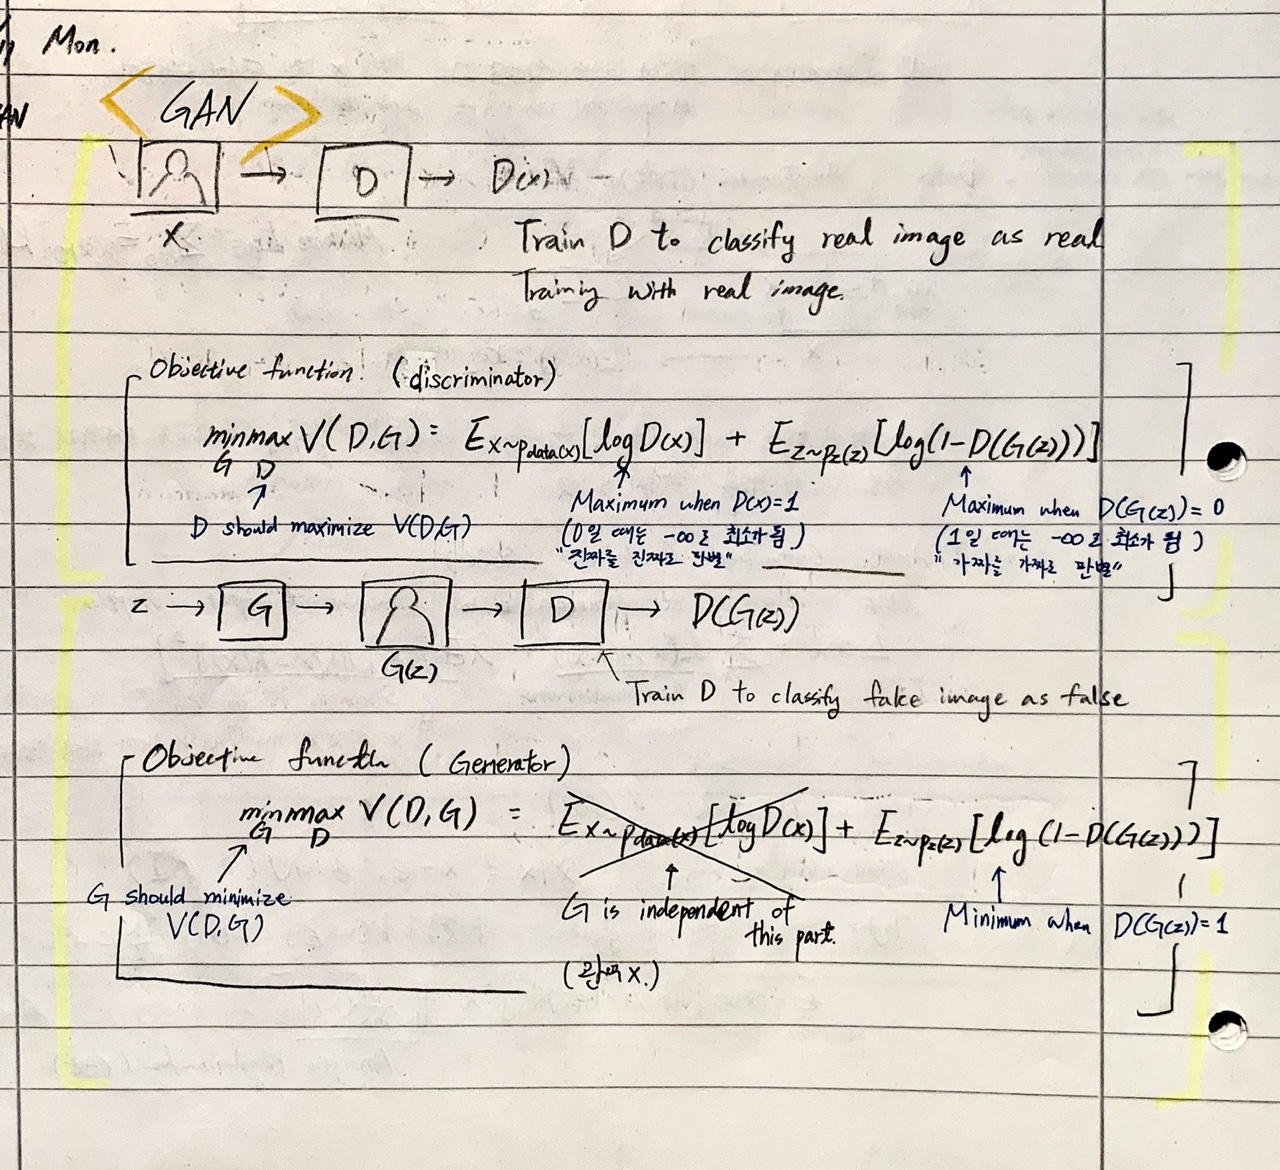 Mon.
GAN
D D(x)
X
Train D to classify real image as real
Training with real image.
Objective function (discriminator)
min max V(D,G) = E x~Pdata(x) [log D(x)] + E z~Pz(z) [log(1-D(G(z)))]
G D
D should maximize V(D,G)
Maximum when D(x)=1
(0일 때는 -∞로 최소가 됨)
"진짜를 진짜로 판별"
Maximum when D(G(z))=0
(1일 때는 -∞로 최소가 됨)
"가짜를 가짜로 판별"
z → G → → D → D(G(z))
G(z)
Train D to classify fake image as false
Objective function (Generator)
min max V(D,G) = E x~Pdata(x) [log D(x)] + E z~Pz(z) [log(1-D(G(z)))]
G D
G should minimize
V(D,G)
G is independent of
this part.
(관여 X.)
Minimum when D(G(z))=1